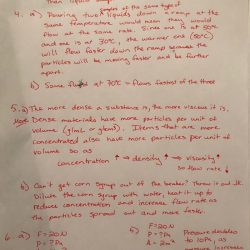 than liquid
4. a) Pouring two liquids down a ramp at the
samples of the same type of
same temperature would mean they would
flow at the same rate. Since one is at 50°C
and one is at 30°C, the warmer one (50°C)
will flow faster down the ramp because the
particles will be moving faster and be further
apart.
b) Same fluid at 70°C - flows fastest of the three
5. a) The more dense a substance is, the more viscous it is.
More Dense materials have more particles per unit of
volume (g/mL or g/cm³). Items that are more
concentrated also have more particles per unit of
volume so as
concentration ↑ → density ↑ → viscosity ↑
so flow rate ↓
b) Can't get corn syrup out of the beaker? Throw it out
Dilute the corn syrup with water, heat it up to
reduce concentration and increase flow rate as
the particles spread out and move faster.
6. a) F=20N
P=?Pa
b) F=20N
P=?Pa
A=2m²
Pressure doubles
to 10Pa, as